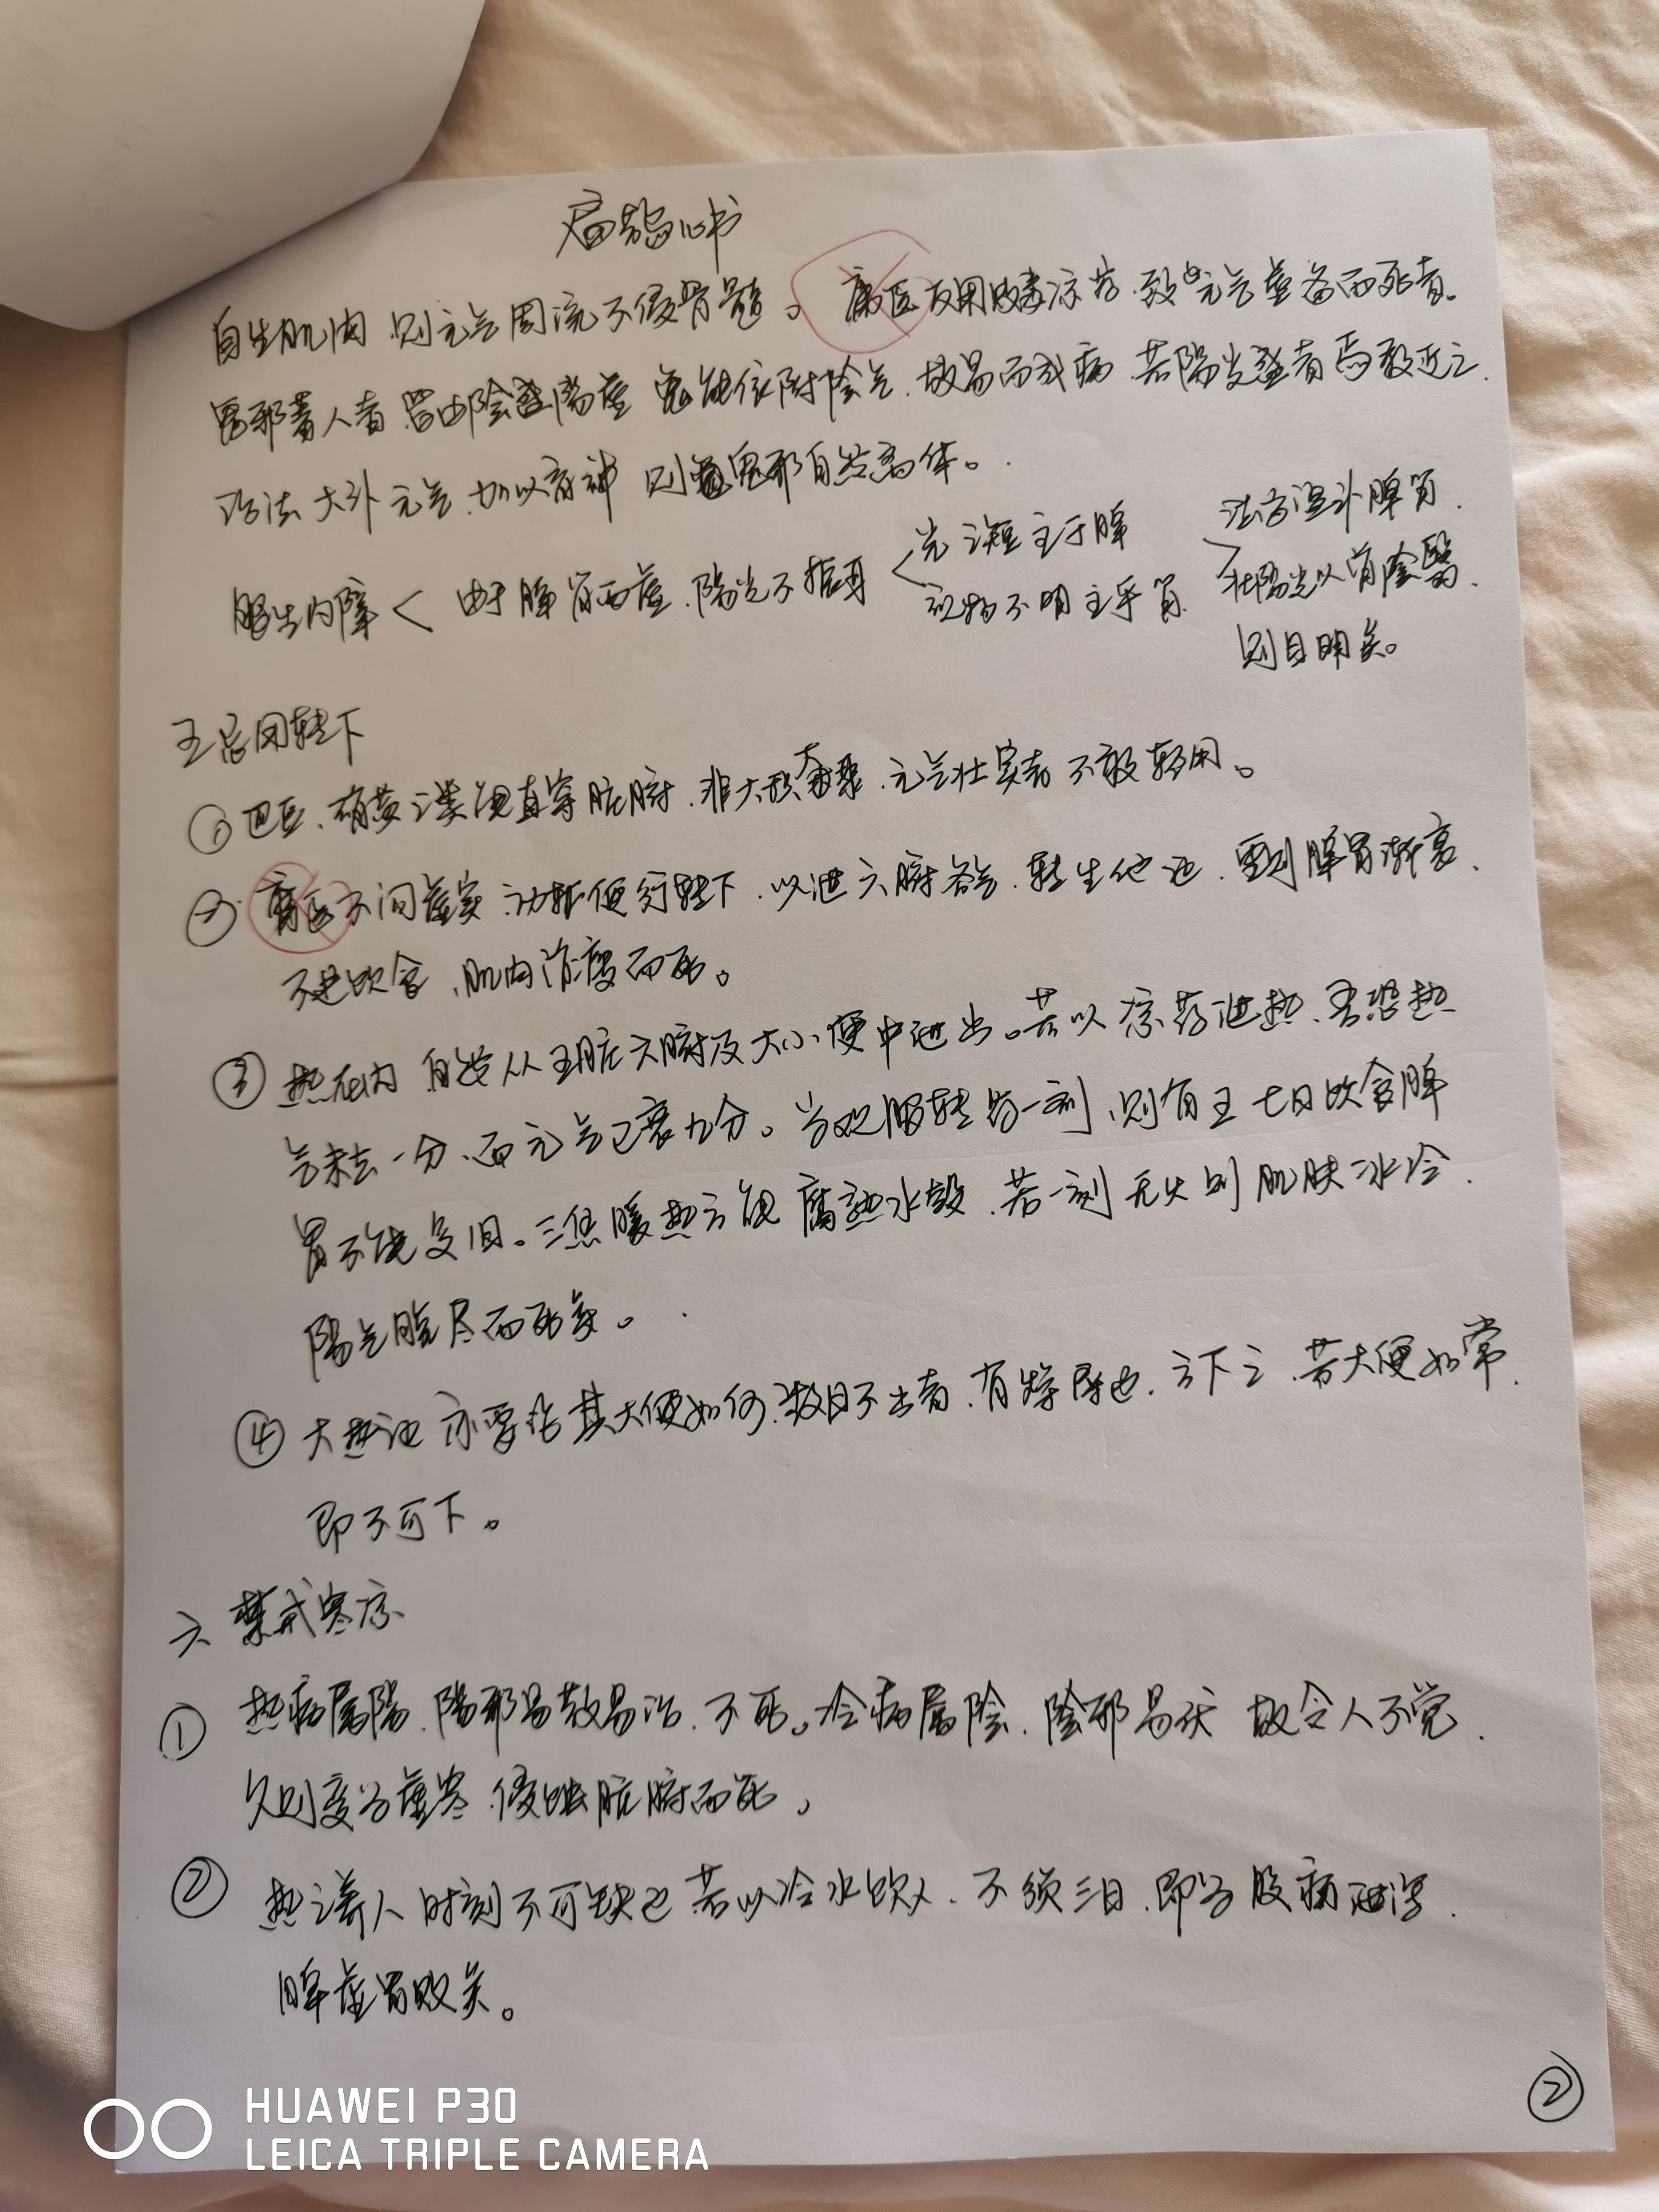 扁鹊心书
自生肌肉 则元气周流不侵骨髓。庸医反用败毒凉药.致元气虚备而死者。
鬼邪著人者 皆由陰盛陽虚 鬼能依附陰气.故易而成病 若陽光盛者焉敢近之.
治法大补元气.加以育神 则鬼邪自然离体。
眼生内障 < 由于脾肾两虚.陽光不振耳
光之短主于脾
视物不明主乎肾
法当温补脾肾.
壮陽光以消陰翳.
则目明矣。
五 忌用转下
① 巴豆、硝黄之类能直穿脏腑.非大积大聚.元气壮实者不敢轻用。
② 庸医不问虚实 动辄便行转下.以泄六腑各气.转生他证.重则脾胃渐衰.
不进饮食、肌肉消瘦而死。
③ 热在内 自然从五脏六腑及大小便中泄出。若以凉药泄热、吾恐热
气未去一分、而元气已衰九分。尝观服转药一剂、则有五七日饮食脾
胃不能复旧。三焦暖热方能腐熟水谷.若一刻无火则肌肤冰冷.
陽气脱尽而死矣。
④ 大热证 亦要看其大便如何.数日不出者.有燥屎也.方下之.若大便如常.
即不可下。
六 禁戒寒凉
① 热病属陽.陽邪易散易治.不死。冷病属陰.陰邪易伏 故令人不觉.
久则变为虚寒 侵蚀脏腑而死。
② 热之养人 时刻不可缺也 若以冷水饮人.不须三日.即为腹病泄泻.
脾虚胃败矣。
②
HUAWEI P30
LEICA TRIPLE CAMERA